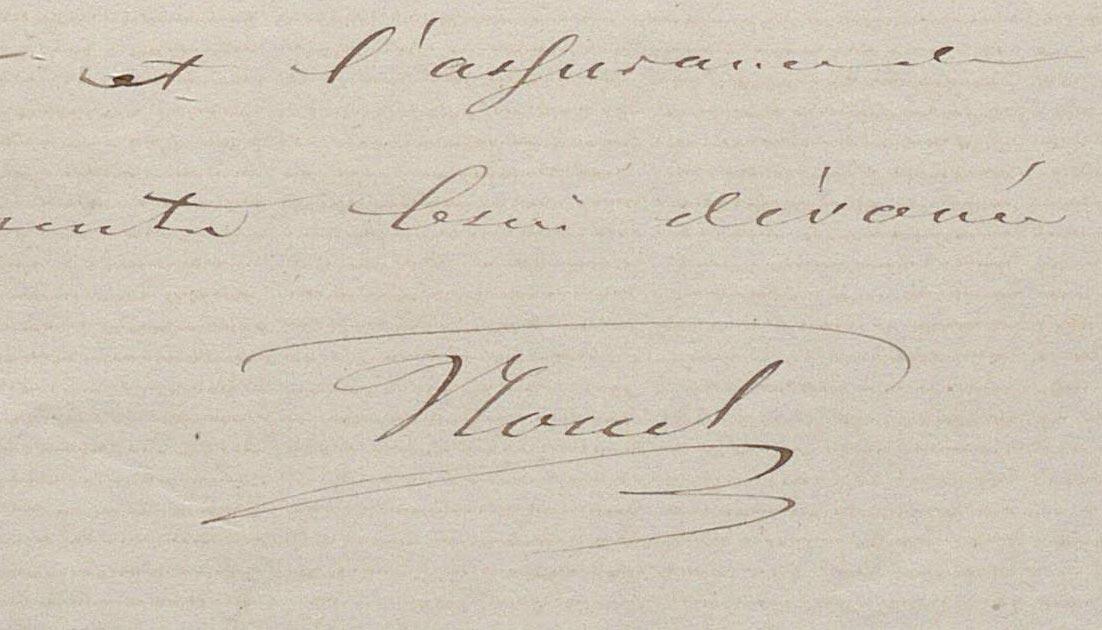 et l'assurance de
bien dévoué
Nouel